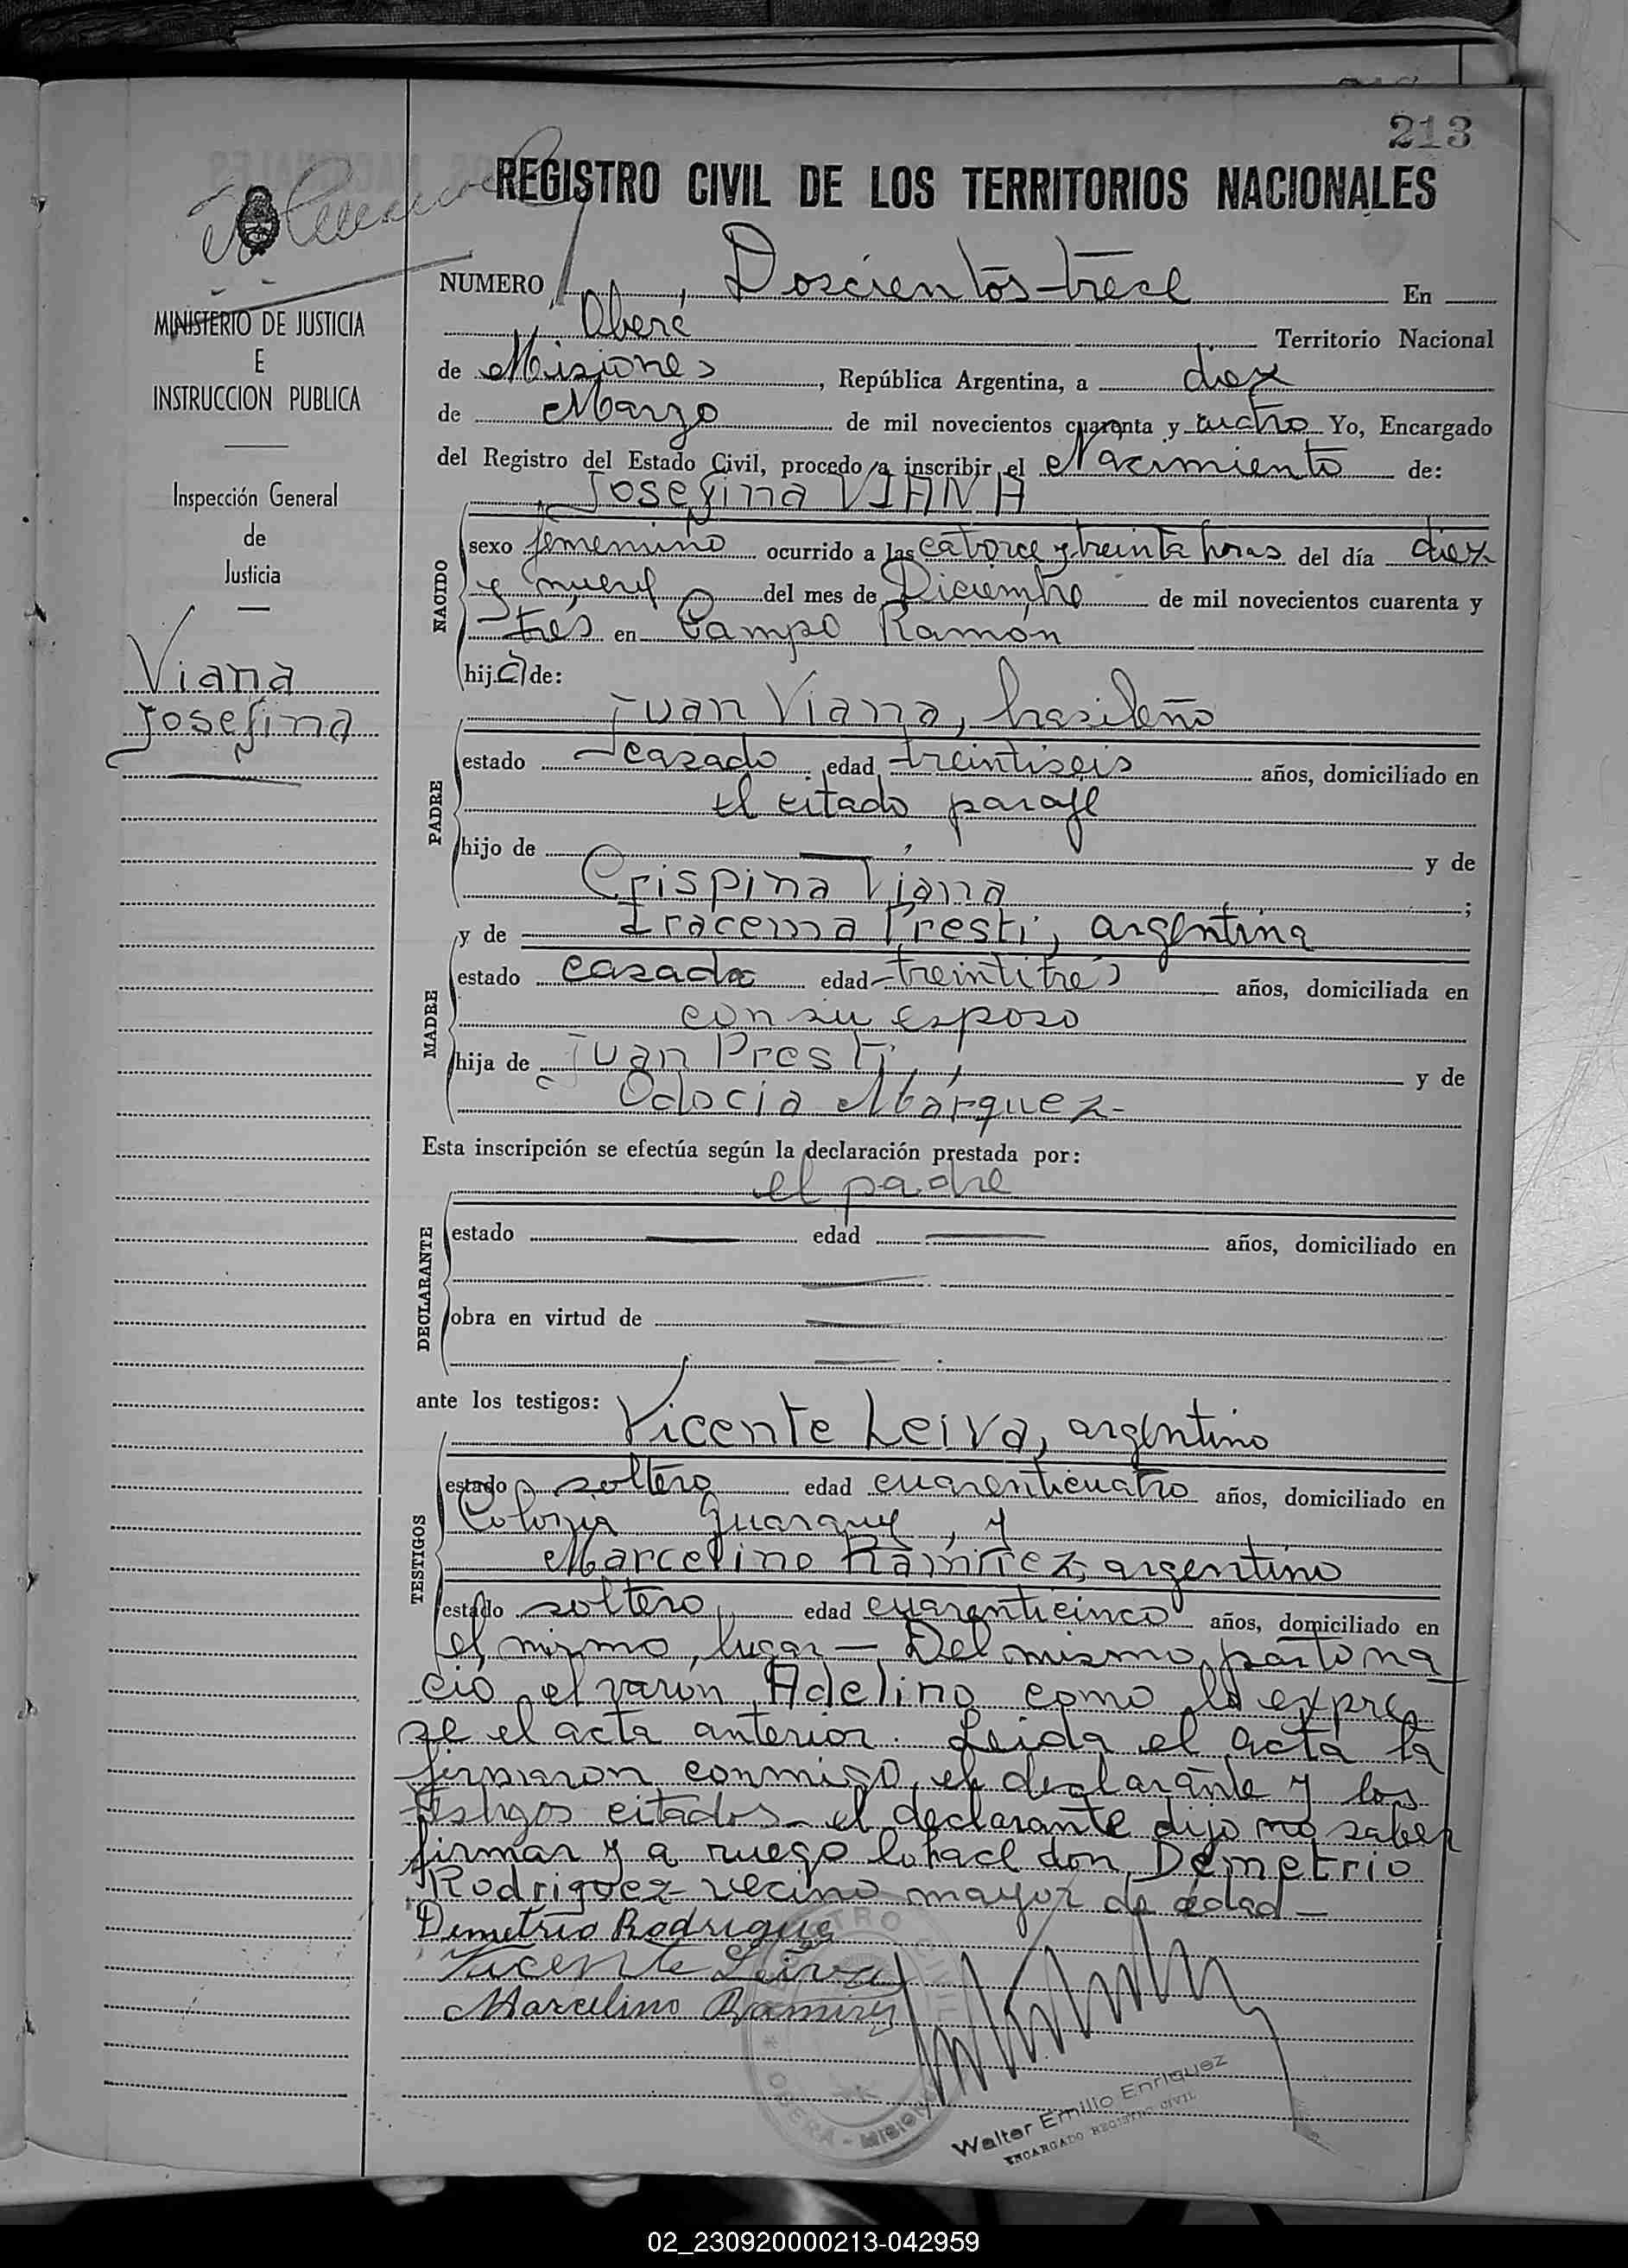 213
REGISTRO CIVIL DE LOS TERRITORIOS NACIONALES
MINISTERIO DE JUSTICIA
E
INSTRUCCION PUBLICA
Inspección General
de
Justicia
Viana
Josefina
NUMERO Doscientos trece En
Oberá Territorio Nacional
de Misiones, República Argentina, a diez
de Marzo de mil novecientos cuarenta y cuatro Yo, Encargado
del Registro del Estado Civil, procedo a inscribir el Nacimiento de:
Josefina VIANA
NACIDO
sexo femenino ocurrido a las catorce y treinta horas del día diez
y nueve del mes de Diciembre de mil novecientos cuarenta y
tres en Campo Ramón
hija de:
Juan Viana, brasileño
PADRE
estado casado edad treintiseis años, domiciliado en
el citado paraje
hijo de — y de
Crispina Viana ;
y de Iracema Presti, argentina
MADRE
estado casada edad treintitres años, domiciliada en
con su esposo
hija de Juan Presti, y de
Odocia Márquez-
Esta inscripción se efectúa según la declaración prestada por:
el padre
DECLARANTE
estado — edad — años, domiciliado en
—
obra en virtud de —
—
ante los testigos:
Vicente Leiva, argentino
TESTIGOS
estado soltero edad cuarenticuatro años, domiciliado en
Colonia Guarany, y
Marcelino Ramírez, argentino
estado soltero edad cuarenticinco años, domiciliado en
el mismo lugar — Del mismo parto na
ció el varón Adelino como lo expre
se el acta anterior. Leida el acta la
firmaron conmigo, el declarante y los
testigos citados - el declarante dijo no saber
firmar y a ruego lo hace don Demetrio
Rodriguez vecino mayor de edad —
Demetrio Rodrigues
Vicente Leiva
Marcelino Ramirez
REGISTRO CIVIL
OBERA - MISIONES
Walter Emilio Enriquez
ENCARGADO REGISTRO CIVIL
02_230920000213-042959